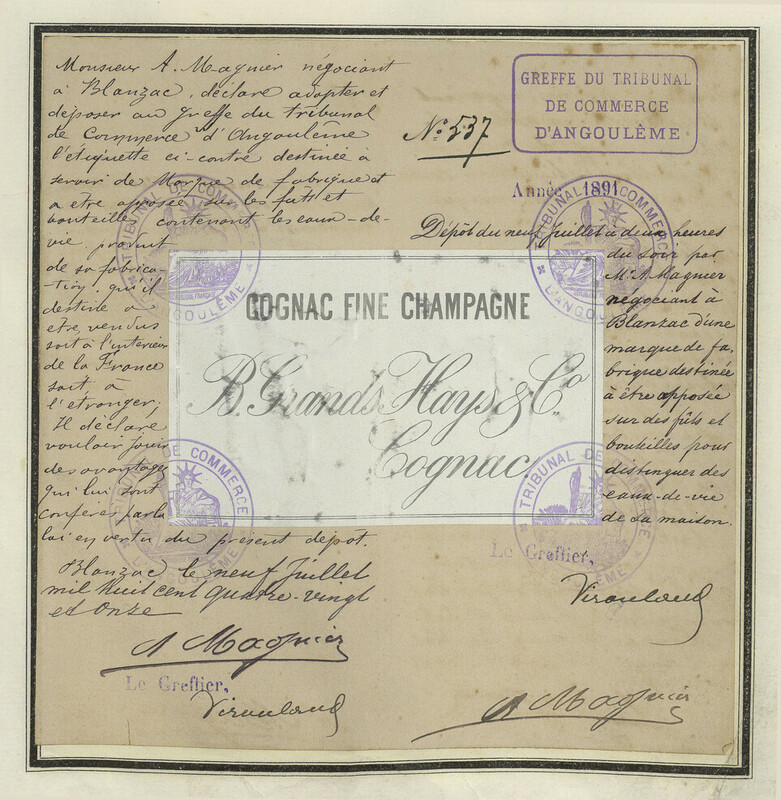 Monsieur A. Magnier négociant
à Blanzac, déclare adopter et
déposer au greffe du tribunal
de Commerce d'Angoulême
l'étiquette ci-contre destinée à
servir de Marque de fabrique et
a etre apposée sur les fûts et
bouteilles contenant les eaux-de-
vie produit
de sa fabrica-
tion, qu'il
destine a
etre vendus
soit à l'interieur
de la France
soit à
l'etranger;
Il déclare
vouloir jouir
des avantages
qui lui sont
conférés par la
loi en vertu du présent dépot.
Blanzac le neuf Juillet
mil huit cent quatre-vingt
et onze
A Magnier
Le Greffier,
GREFFE DU TRIBUNAL
DE COMMERCE
D'ANGOULÊME
No 537
Année 1891
Dépôt du neuf Juillet à deux heures
du soir par
Mr A. Magnier
négociant à
Blanzac d'une
marque de fa-
brique destinée
à être apposée
sur des fûts et
bouteilles pour
distinguer des
eaux-de-vie
de sa maison.
Le Greffier,
A Magnier
COGNAC FINE CHAMPAGNE
B. Grands Hays & Co.
Cognac
TRIBUNAL DE COMMERCE
D'ANGOULÊME
TRIBUNAL DE COMMERCE
D'ANGOULÊME
TRIBUNAL DE COMMERCE
D'ANGOULÊME
TRIBUNAL DE COMMERCE
D'ANGOULÊME